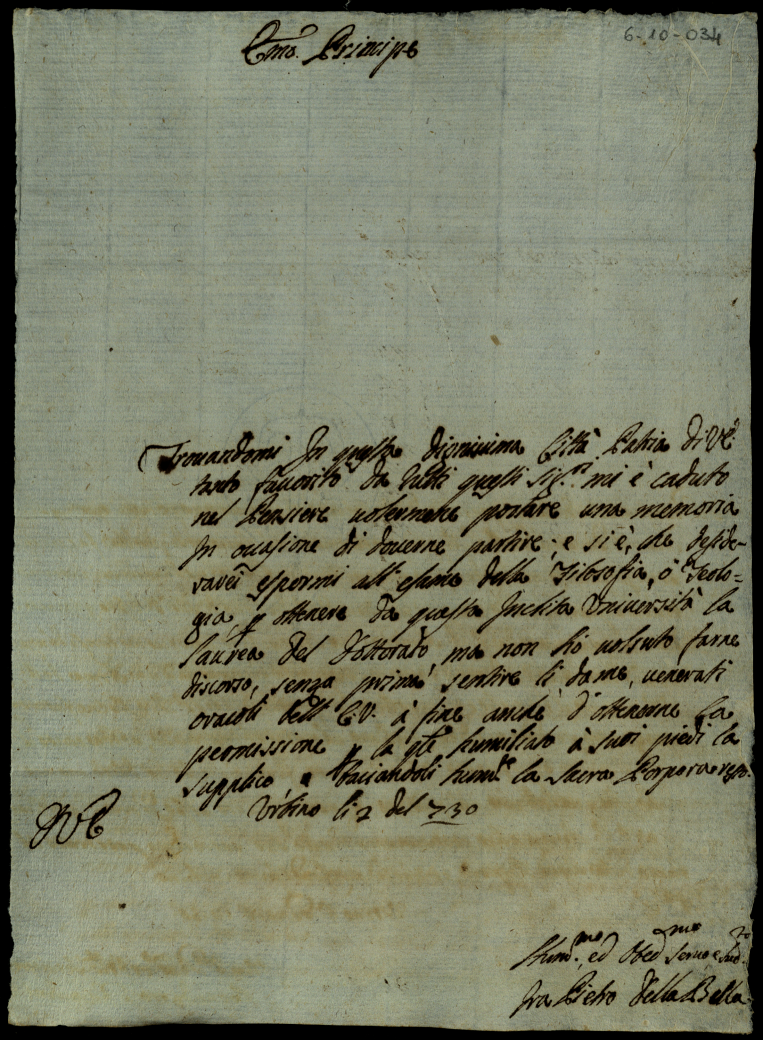 6-10-034
Emo. Principe
Trouandomi In questa dignissima Città Patria di VE.
tanto fauorito da tutti questi Sig.ri mi è caduto
nel Pensiere uolermene portare una memoria
In occasione di douerne partire; e si è, che deside-
rarei espormi all'esame della Filosofia, ò Teolo-
gia, p ottenere da questa Inclita Università la
laurea del Dottorato, ma non hò uoluto farne
discorso, senza prima sentire li, da me, uenerati
oracoli dell' E.V. à fine anche d'ottenerne la
permissione p la qle humiliato à suoi piedi la
supplico baciandoli hum.te la sacra Porpora
Vrbino li 2 del 730
DVE
Hum.mo, ed Obed.mo Seruo e Sud.to
fra Pietro Della Bella